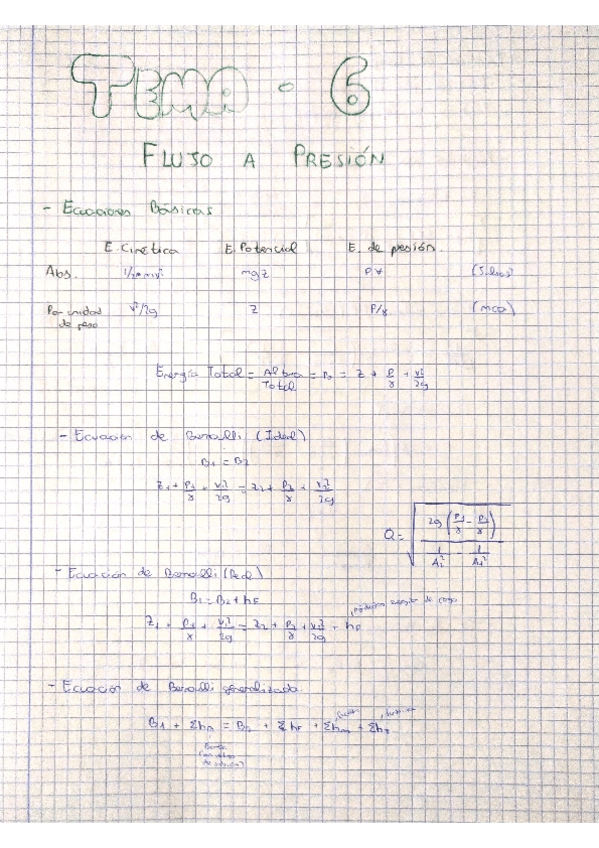 TEMA - 6
FLUJO A PRESIÓN
- Ecuaciones Básicas
E. Cinética E. Potencial E. de presión
Abs. 1/2 mv² mgz P∀
Por unidad de peso v²/2g z P/γ (mca)
Energía Total = Altura Total = B = z + P/γ + v²/2g
- Ecuación de Bernoulli (Ideal)
B₁ = B₂
z₁ + P₁/γ + v₁²/2g = z₂ + P₂/γ + v₂²/2g
Q = √(2g (P₁/γ - P₂/γ) / (1/A₂² - 1/A₁²))
- Ecuación de Bernoulli (Real)
B₁ = B₂ + hF
z₁ + P₁/γ + v₁²/2g = z₂ + P₂/γ + v₂²/2g + hF
- Ecuación de Bernoulli generalizada
B₁ + Σh = B₂ + Σhf + Σhm + Σh